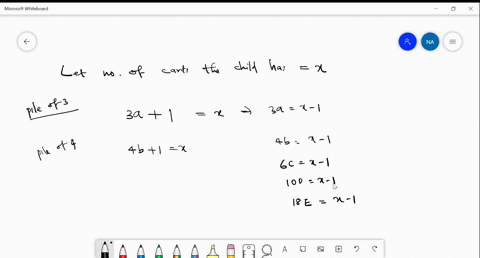 Microsoft Whiteboard
NA
Let no. of carts the child has = x
pile of 3
3a + 1 = x → 3a = x-1
pile of 4
4b+1 = x
4b = x-1
6C = x-1
10D = x-1
18E = x-1